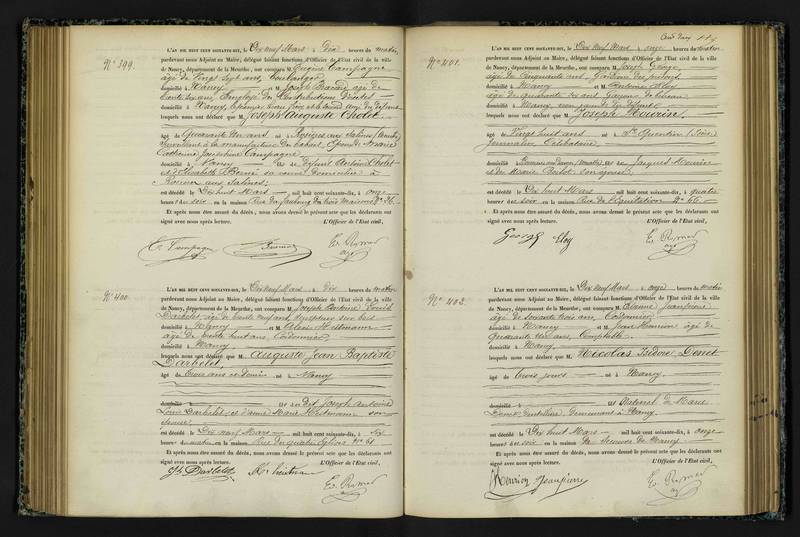 N° 399.
L'AN MIL HUIT CENT SOIXANTE-DIX, le Dix neuf Mars à Dix heures du matin
pardevant nous Adjoint au Maire, délégué faisant fonctions d'Officier de l'Etat civil de la ville
de Nancy, département de la Meurthe, ont comparu M Eugène Campagne
âgé de Vingt sept ans, Boulanger
domicilié à Nancy et M Joseph âgé de
ans, Employé des Contributions Directes
domicilié à Nancy,
lesquels nous ont déclaré que M Joseph Auguste Cholet
âgé de Quarante ans né à Rosières aux Salines (Meurthe)
à la manufacture de tabacs, Epoux de Marie
Catherine Joséphine Campagne
à Nancy fils de défunt Antoine Cholet
et d'Elisabeth sa veuve domiciliée à
Rosières aux Salines;
est décédé le Dix huit Mars mil huit cent soixante-dix, à onze
heures du soir en la maison Rue du faubourg des trois Maisons N° 36.
Et après nous être assuré du décès, nous avons dressé le présent acte que les déclarants ont
signé avec nous après lecture. L'Officier de l'Etat civil,
N° 400.
L'AN MIL HUIT CENT SOIXANTE-DIX, le Dix neuf Mars à Dix heures du matin
pardevant nous Adjoint au Maire, délégué faisant fonctions d'Officier de l'Etat civil de la ville
de Nancy, département de la Meurthe, ont comparu M Joseph Antoine Louis
Darbelet, âgé de trente neuf ans, Sculpteur sur bois
domicilié à Nancy et M Alexis
âgé de trente huit ans, Cordonnier
domicilié à Nancy
lesquels nous ont déclaré que M Auguste Jean Baptiste
Darbelet,
âgé de Trois ans et demi né à Nancy
domicilié à fils de dit Joseph Antoine
Louis Darbelet, et d'Anne Marie son
épouse;
est décédé le Dix neuf Mars mil huit cent soixante-dix, à Six
heures du matin en la maison Rue des quatre Eglises N° 61
Et après nous être assuré du décès, nous avons dressé le présent acte que les déclarants ont
signé avec nous après lecture. L'Officier de l'Etat civil,
N° 401.
L'AN MIL HUIT CENT SOIXANTE-DIX, le Dix neuf Mars à onze heures du Matin
pardevant nous Adjoint au Maire, délégué faisant fonctions d'Officier de l'Etat civil de la ville
de Nancy, département de la Meurthe, ont comparu M Joseph George,
âgé de Cinquante ans, Gardien des prisons
domicilié à Nancy et M Antoine Aloy
âgé de quarante six ans, Garçon de bureau
domicilié à Nancy, non parents du défunt
lesquels nous ont déclaré que M Joseph
âgé de Vingt huit ans né à St Quentin (Aisne)
Journalier Célibataire
fils de Jacques
et de Marie son épouse;
est décédé le Dix huit Mars mil huit cent soixante-dix, à quatre
heures du soir en la maison Rue de l'Equitation N° 66
Et après nous être assuré du décès, nous avons dressé le présent acte que les déclarants ont
signé avec nous après lecture. L'Officier de l'Etat civil,
George Aloy
N° 402.
L'AN MIL HUIT CENT SOIXANTE-DIX, le Dix neuf Mars à onze heures du matin
pardevant nous Adjoint au Maire, délégué faisant fonctions d'Officier de l'Etat civil de la ville
de Nancy, département de la Meurthe, ont comparu M Etienne Jeanpierre
âgé de Soixante trois ans, Cordonnier
domicilié à Nancy et M Jean Henrion âgé de
Quarante six ans, Comptable
domicilié à Nancy
lesquels nous ont déclaré que M Nicolas Isidore Denet
âgé de Trois jours né à Nancy.
fils Naturel de Marie
Denet demeurant à Nancy.
est décédé le Dix huit Mars mil huit cent soixante-dix, à onze
heures du soir en la maison de Secours de Nancy
Et après nous être assuré du décès, nous avons dressé le présent acte que les déclarants ont
signé avec nous après lecture. L'Officier de l'Etat civil,
Henrion Jeanpierre